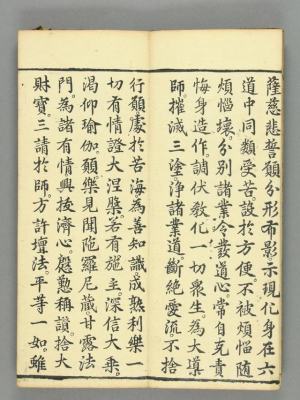 薩慈悲誓願分形布影示現化身在六
道中同類受苦設於方便不被煩惱隨
煩惱壞分別諸業令發道心常自克責
悔身造作調伏教化一切衆生為大導
師摧滅三塗淨諸業道斷絕愛流不捨
行願處於苦海為善知識成熟利樂一
切有情證大涅槃若有施主深信大乘
渴仰瑜伽願樂見聞陁羅尼藏甘露法
門為諸有情興拔濟心慇懃稱讃捨大
財寶三請於師方許壇法平等一如雖